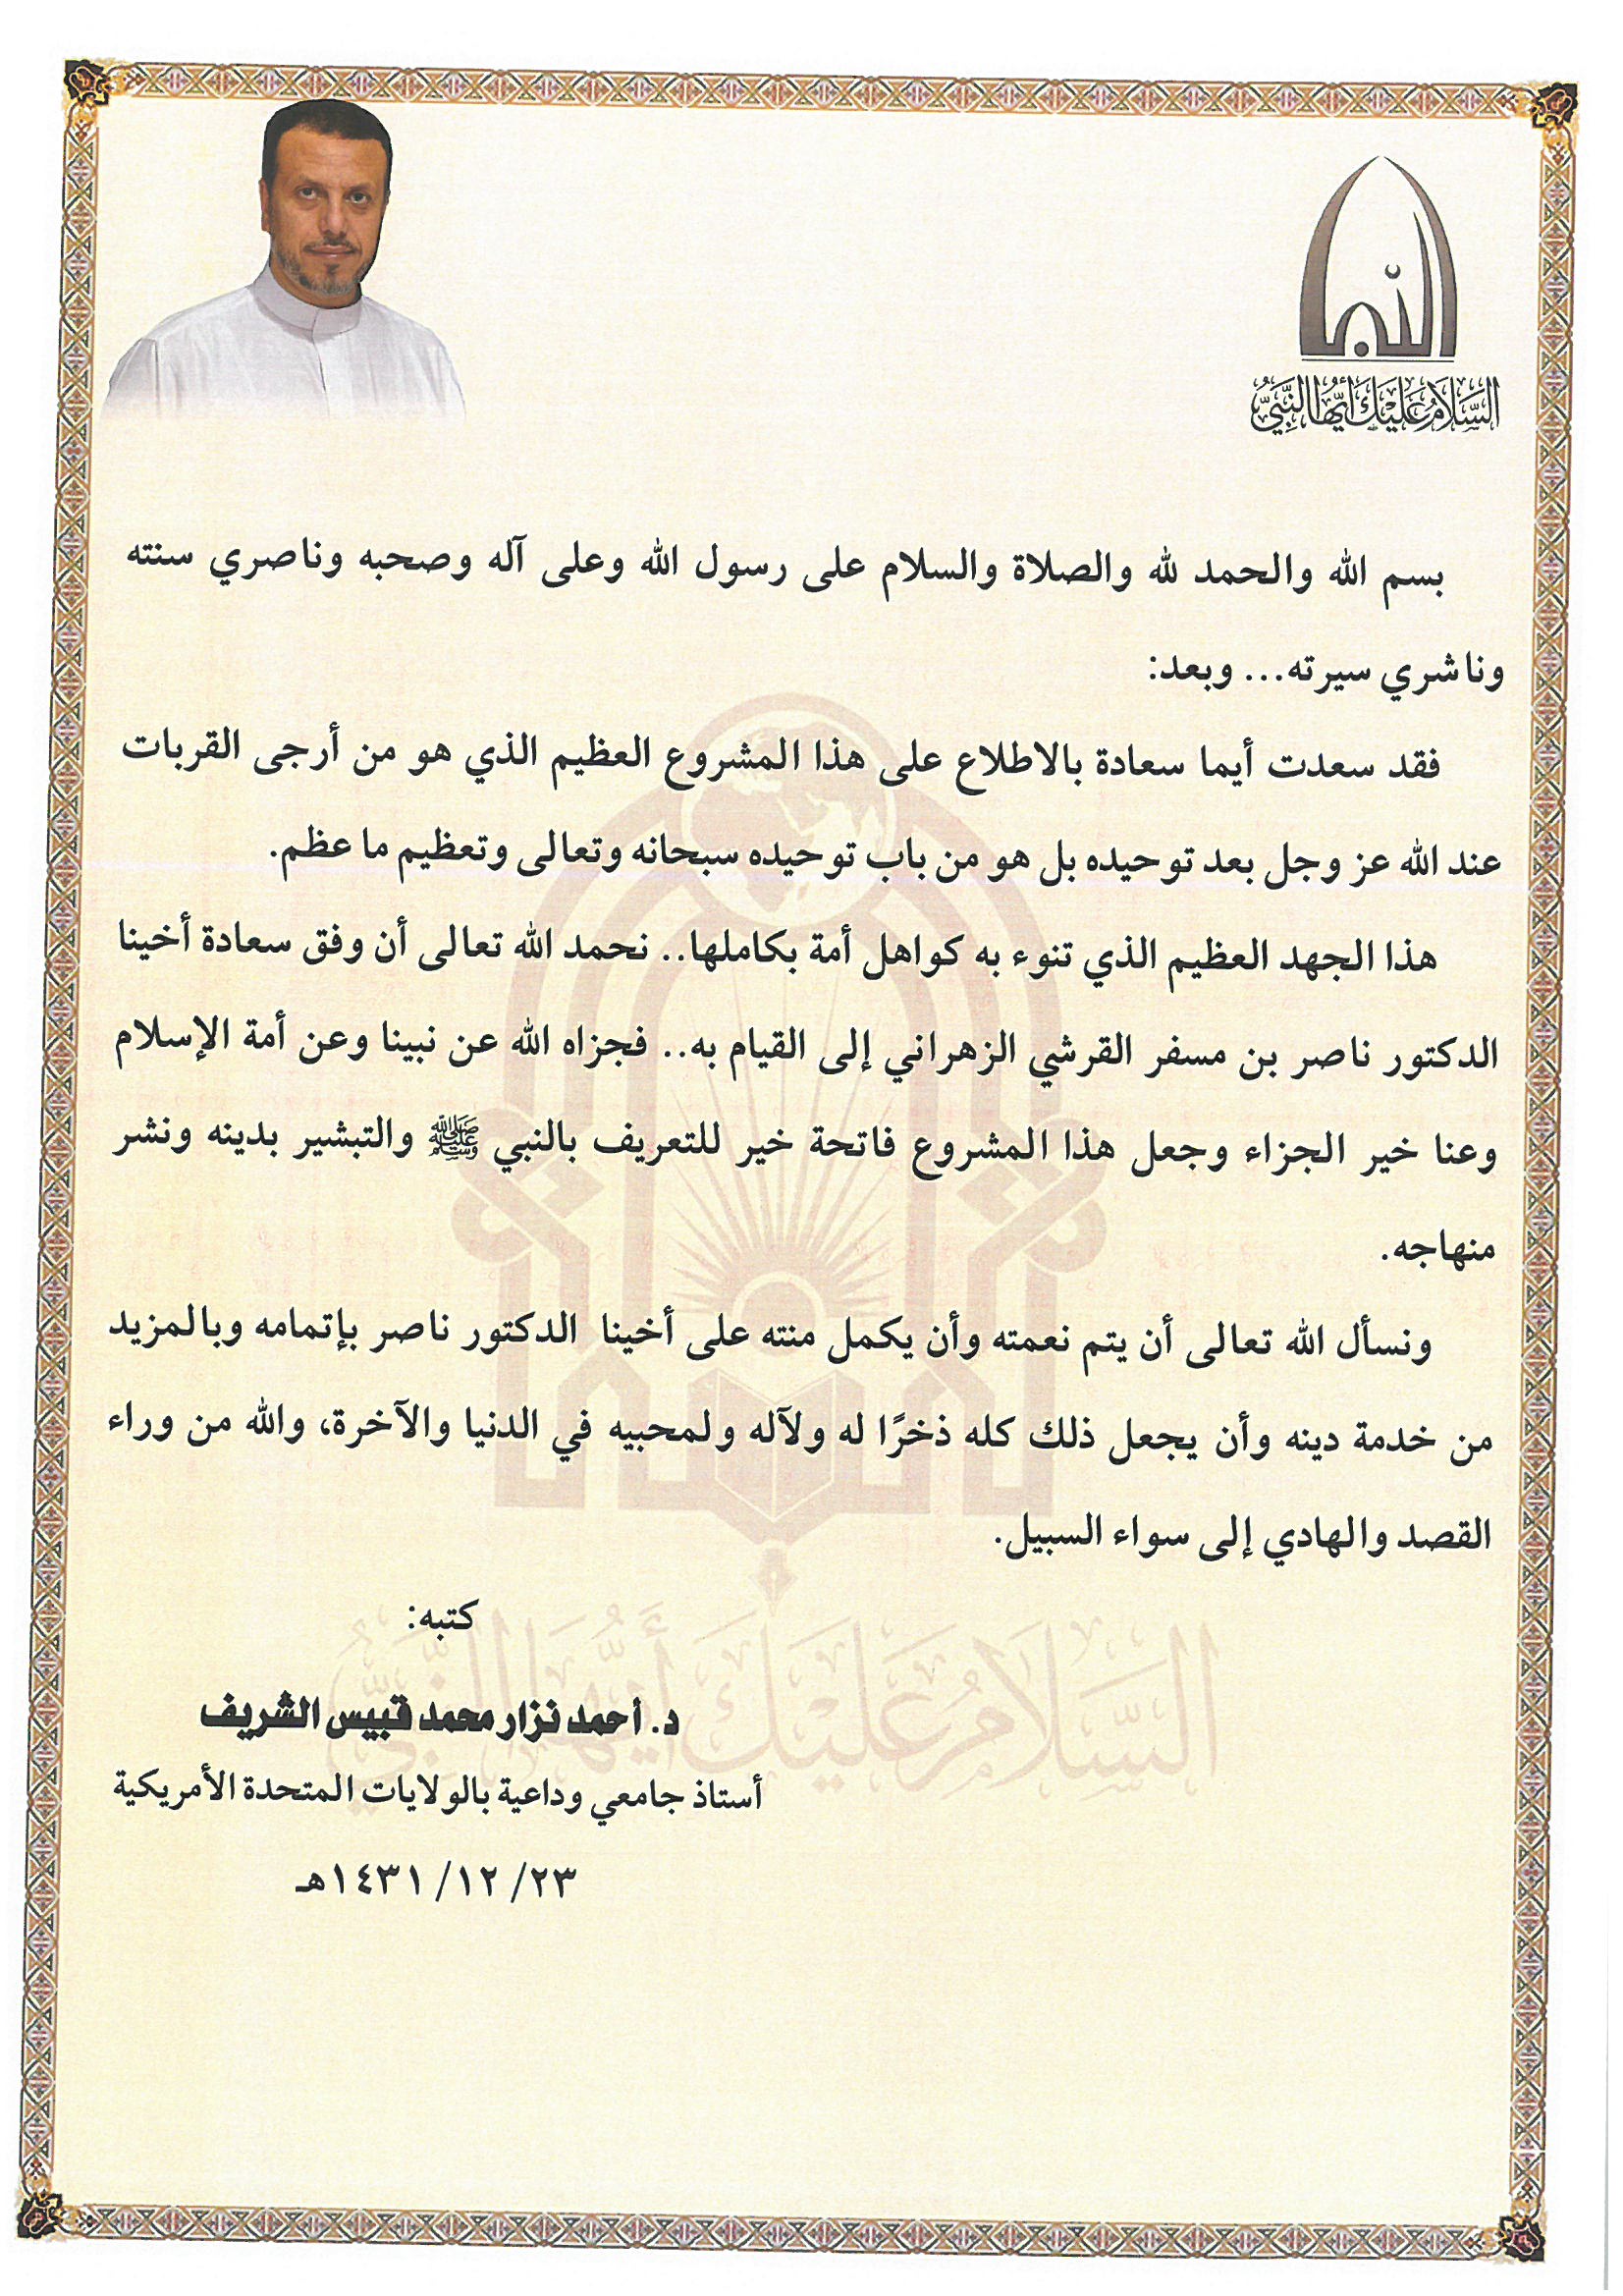 السلام عليك أيها النبي
بسم الله والحمد لله والصلاة والسلام على رسول الله وعلى آله وصحبه وناصري سنته
وناشري سيرته... وبعد:
فقد سعدت أيما سعادة بالاطلاع على هذا المشروع العظيم الذي هو من أرجى القربات
عند الله عز وجل بعد توحيده بل هو من باب توحيده سبحانه وتعالى وتعظيم ما عظم.
هذا الجهد العظيم الذي تنوء به كواهل أمة بكاملها.. نحمد الله تعالى أن وفق سعادة أخينا
الدكتور ناصر بن مسفر القرشي الزهراني إلى القيام به.. فجزاه الله عن نبينا وعن أمة الإسلام
وعنا خير الجزاء وجعل هذا المشروع فاتحة خير للتعريف بالنبي ﷺ والتبشير بدينه ونشر
منهاجه.
ونسأل الله تعالى أن يتم نعمته وأن يكمل منته على أخينا الدكتور ناصر بإتمامه وبالمزيد
من خدمة دينه وأن يجعل ذلك كله ذخرًا له ولآله ولمحبيه في الدنيا والآخرة، والله من وراء
القصد والهادي إلى سواء السبيل.
كتبه:
السلام عليك أيها النبي
د. أحمد نزار محمد قبيس الشريف
أستاذ جامعي وداعية بالولايات المتحدة الأمريكية
٢٣/ ١٢/ ١٤٣١هـ